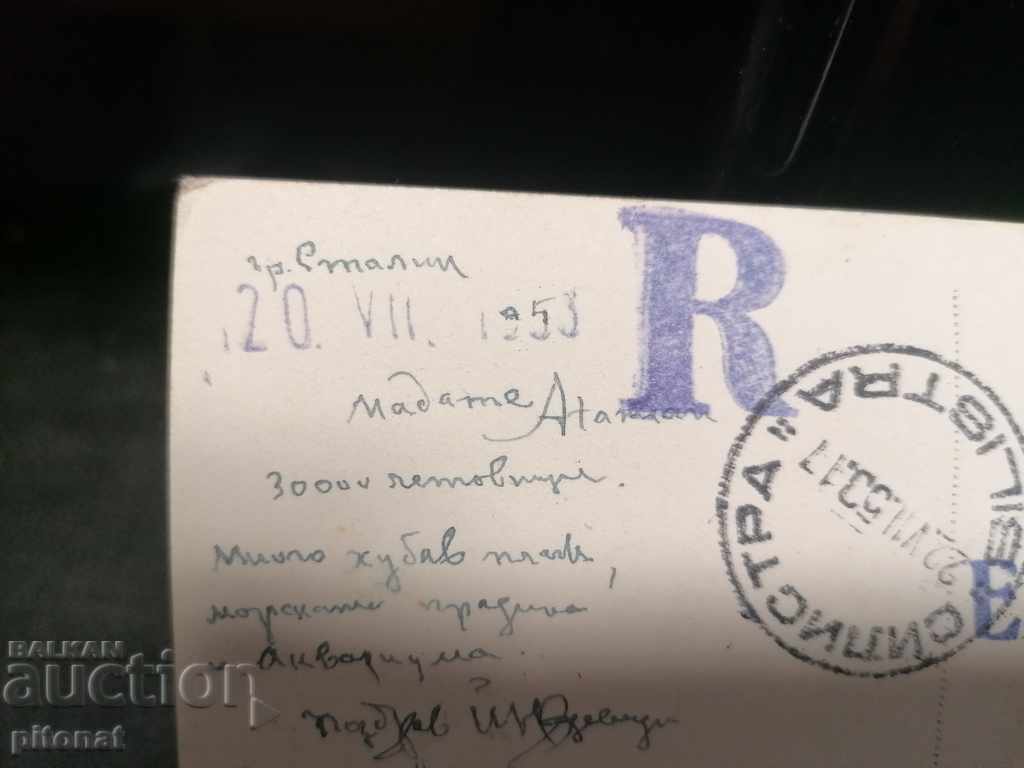 гр. Сталин
20. VII. 1953
R
Мадате
30000 четовници.
Много хубав плаж,
морската градина
и аквариума.
Поздрав
СИЛИСТРА " SILISTRA
22.VII.53.17
E
BALKAN
auction
pitonat